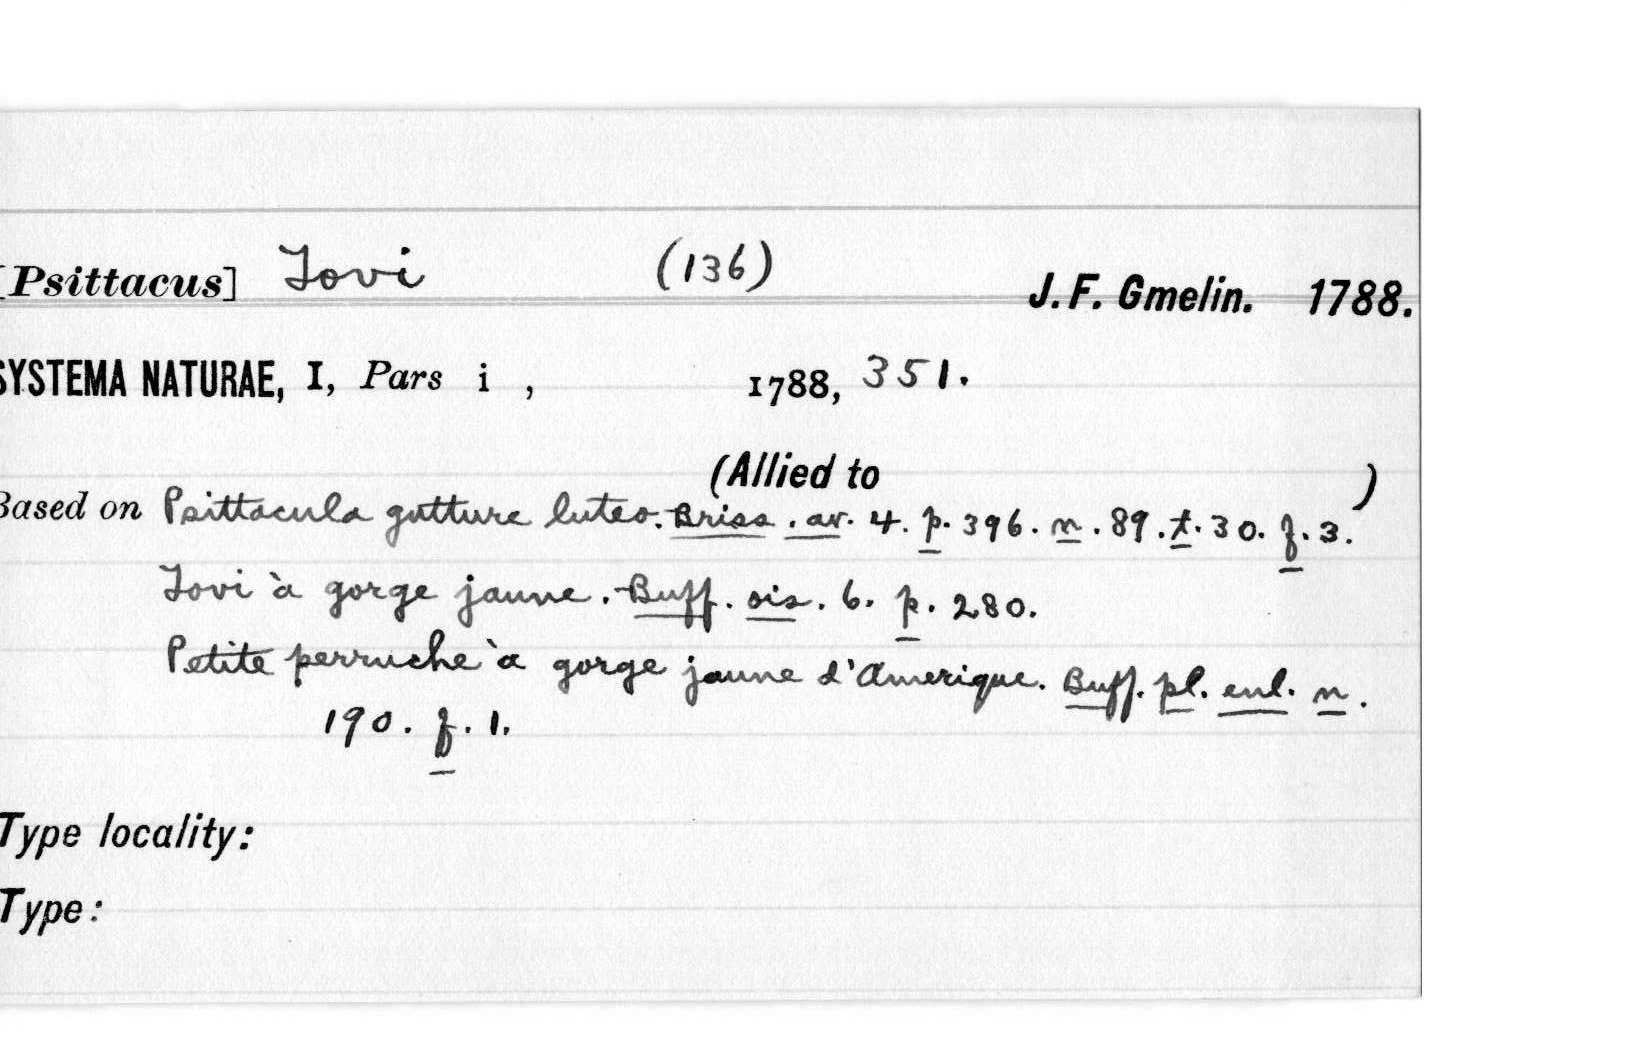 [Psittacus] Tovi (136) J. F. Gmelin. 1788.
SYSTEMA NATURAE, I, Pars i , 1788, 351.
(Allied to )
Based on Psittacula gutture luteo. Briss. av. 4. p. 396. n. 89. t. 30. f. 3.
Tovi à gorge jaune. Buff. ois. 6. p. 280.
Petite perruche à gorge jaune d'Amerique. Buff. pl. enl. n.
190. f. 1.
Type locality:
Type: